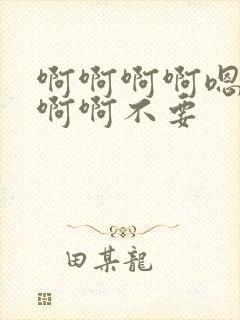 啊啊啊啊嗯
啊啊不要
田某龍